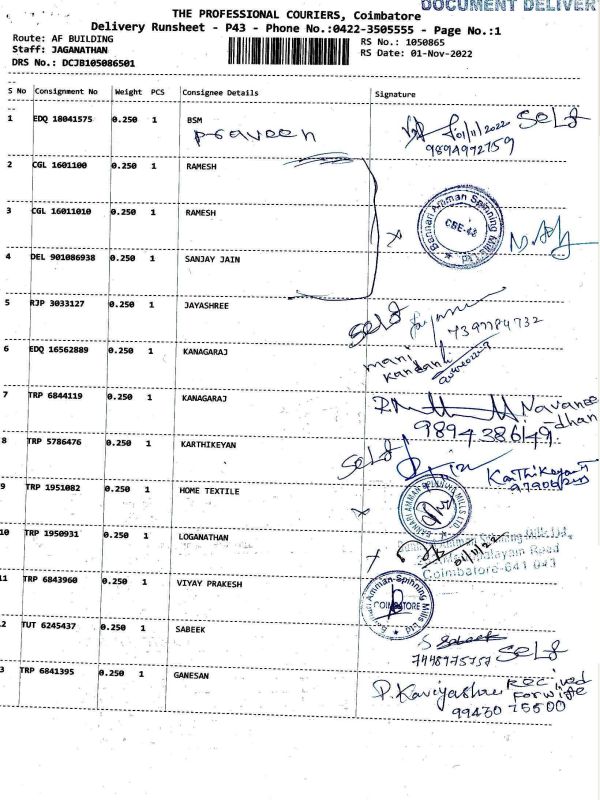 DOCUMENT DELIVERY
THE PROFESSIONAL COURIERS, Coimbatore
Delivery Runsheet - P43 - Phone No.:0422-3505555 - Page No.:1
Route: AF BUILDING
Staff: JAGANATHAN
DRS No.: DCJB105086501
RS No.: 1050865
RS Date: 01-Nov-2022
S No Consignment No Weight PCS Consignee Details Signature
1 EDQ 18041575 0.250 1 BSM
Praveen
01/11/2022 Self
9894972759
2 CGL 1601100 0.250 1 RAMESH
3 CGL 16011010 0.250 1 RAMESH
Bannari Amman Spinning Mills Ltd
CBE-43
4 DEL 901086938 0.250 1 SANJAY JAIN
5 RJP 3033127 0.250 1 JAYASHREE
Self
7397784732
6 EDQ 16562889 0.250 1 KANAGARAJ
mani
Kandan
7 TRP 6844119 0.250 1 KANAGARAJ
Navanee
dhan
9894386149
8 TRP 5786476 0.250 1 KARTHIKEYAN
Self
Karthikeyan
9 TRP 1951082 0.250 1 HOME TEXTILE
BANNARI AMMAN SPINNING MILLS LTD
10 TRP 1950931 0.250 1 LOGANATHAN
01/11/22
Spinning Mills Ltd.,
Road
Coimbatore-641 043
11 TRP 6843960 0.250 1 VIYAY PRAKESH
Bannari Amman Spinning Mills Ltd
COIMBATORE
2 TUT 6245437 0.250 1 SABEEK
S Sabeek
Self
3 TRP 6841395 0.250 1 GANESAN
P. Kaviyashree Received
For wife
99430 15500